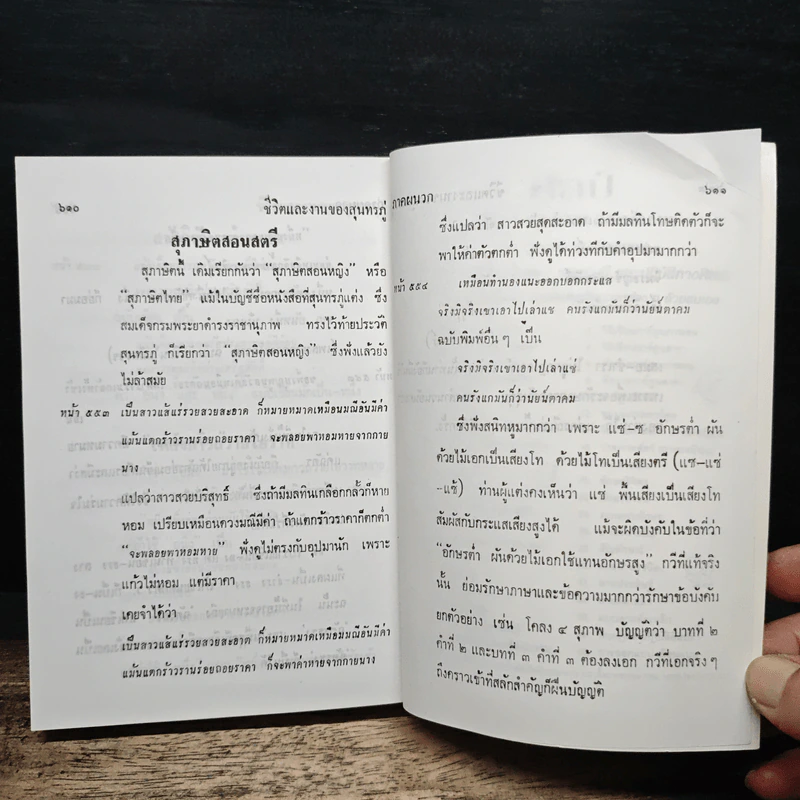 ๖๑๐
ชีวิตและงานของสุนทรภู่
สุภาษิตสอนสตรี
สุภาษิตนี้ เดิมเรียกกันว่า “สุภาษิตสอนหญิง” หรือ
“สุภาษิตไทย” แม้ในบัญชีชื่อหนังสือที่สุนทรภู่แต่ง ซึ่ง
สมเด็จกรมพระยาดำรงราชานุภาพ ทรงไว้ท้ายประวัติ
สุนทรภู่ ก็เรียกว่า “สุภาษิตสอนหญิง” ซึ่งฟังแล้วยัง
ไม่ล้าสมัย
หน้า ๕๕๓ เป็นสาวแส้แร่รวยสวยสะอาด ก็หมายหมาดเหมือนมณีอันมีค่า
แม้นแตกร้าวรานร่อยถอยราคา จะพลอยพาหอมหายจากกาย
นาง
แปลว่าสาวสวยบริสุทธิ์ ซึ่งถ้ามีมลทินเกลือกกลั้วก็หาย
หอม เปรียบเหมือนดวงมณีมีค่า ถ้าแตกร้าวราคาก็ตกต่ำ
“จะพลอยพาหอมหาย” ฟังดูไม่ตรงกับอุปมานัก เพราะ
แก้วไม่หอม แต่มีราคา
เคยจำได้ว่า
เป็นสาวแส้แร่รวยสวยสะอาด ก็หมายหมาดเหมือนมณีอันมีค่า
แม้นแตกร้าวรานร่อยถอยราคา ก็จะพาค่าหายจากกายนาง
ภาคผนวก
๖๑๑
ซึ่งแปลว่า สาวสวยสุดสะอาด ถ้ามีมลทินโทษติดตัวก็จะ
พาให้ค่าตัวตกต่ำ ฟังดูได้ท่วงทีกับคำอุปมามากกว่า
หน้า ๕๕๔ เหมือนทำนองแนะออกบอกกระแส
จริงมิจริงเขาเอาไปเล่าแซ คนรังแกมันก็ว่านัยน์ตาคม
ฉบับพิมพ์อื่น ๆ เป็น
จริงมิจริงเขาเอาไปเล่าแซ่
คนรังแกมันก็ว่านัยน์ตาคม
ซึ่งฟังสนิทหูมากกว่า เพราะ แซ่-ซ อักษรต่ำ ผัน
ด้วยไม้เอกเป็นเสียงโท ด้วยไม้โทเป็นเสียงตรี (แซ-แซ่
-แซ้) ท่านผู้แต่งคงเห็นว่า แซ่ พื้นเสียงเป็นเสียงโท
สัมผัสกับกระแสเสียงสูงได้ แม้จะผิดบังคับในข้อที่ว่า
“อักษรต่ำ ผันด้วยไม้เอกใช้แทนอักษรสูง” กวีที่แท้จริง
นั้น ย่อมรักษาภาษาและข้อความมากกว่ารักษาข้อบังคับ
ยกตัวอย่าง เช่น โคลง ๔ สุภาพ บัญญัติว่า บาทที่ ๒
คำที่ ๒ และบทที่ ๓ คำที่ ๓ ต้องลงเอก กวีที่เอกจริง ๆ
ถึงคราวเข้าที่สลักสำคัญก็ฝืนบัญญัติ